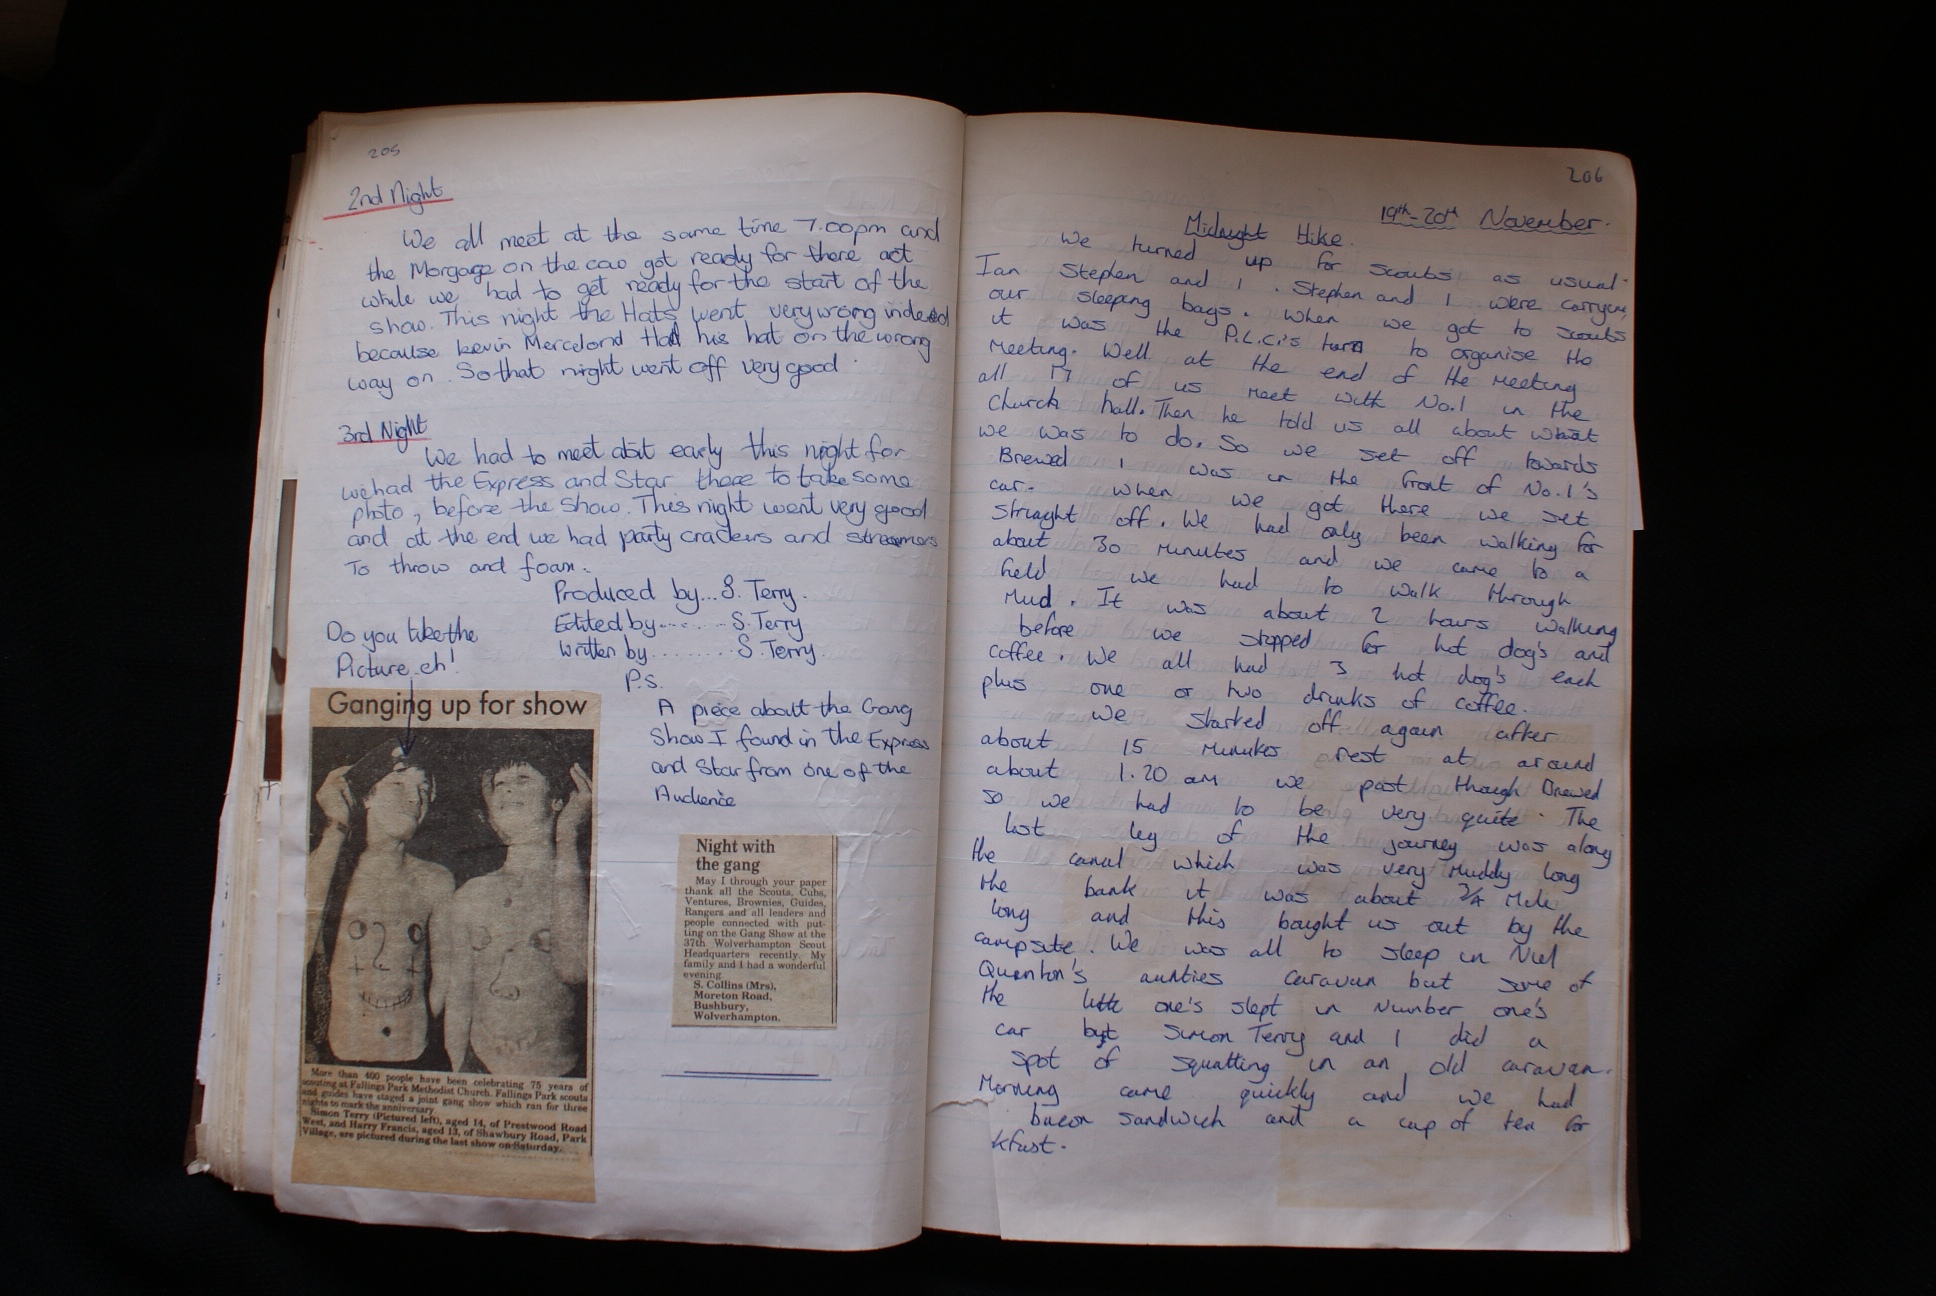 205
2nd Night
We all meet at the same time 7.00pm and
the Morgage on the cow got ready for there act
while we had to get ready for the start of the
show. This night the Hats went very wrong indeed
because kevin Mercelond Had his hat on the wrong
way on. So that night went off very good.
3rd Night
We had to meet abit early this night for
we had the Express and Star there to take some
photo, before the show. This night went very good
and at the end we had party crackers and streamers
To throw and foam.
Produced by... S. Terry.
Edited by........ S. Terry
written by........ S. Terry.
Do you like the
Picture eh!
P.S.
A piece about the Gang
Show I found in the Express
and Star from one of the
Audience
Ganging up for show
More than 400 people have been celebrating 75 years of
scouting at Fallings Park Methodist Church. Fallings Park scouts
and guides have staged a joint gang show which ran for three
nights to mark the anniversary.
Simon Terry (Pictured left), aged 14, of Prestwood Road
West, and Harry Francis, aged 13, of Shawbury Road, Park
Village, are pictured during the last show on Saturday.
Night with
the gang
May I through your paper
thank all the Scouts, Cubs,
Ventures, Brownies, Guides,
Rangers and all leaders and
people connected with put-
ting on the Gang Show at the
37th Wolverhampton Scout
Headquarters recently. My
family and I had a wonderful
evening.
S. Collins (Mrs),
Moreton Road,
Bushbury,
Wolverhampton.
206
19th-20th November.
Midnight Hike.
We turned up for scouts as usual
Ian Stephen and I. Stephen and I were carrying
our sleeping bags. When we got to scouts
it was the P.L.C.'s turn to organise the
Meeting. Well at the end of the Meeting
all 17 of us meet with No.1 in the
Church hall. Then he told us all about what
we was to do. So we set off towards
Brewed I was in the front of No.1's
car. When we got there we set
striaght off. We had only been walking for
about 30 minutes and we came to a
field we had to walk through
Mud. It was about 2 hours walking
before we stopped for hot dog's and
coffee. We all had 3 hot dog's each
plus one or two drinks of coffee.
We started off again after
about 15 minutes rest at around
about 1.20 am we past though Brewed
so we had to be very quite. The
last leg of the journey was along
the canal which was very Muddy long
the bank it was about 3/4 Mile
long and this bought us out by the
campsite. We was all to sleep in Niel
Quenton's aunties caravan but some of
the little one's slept in Number one's
car but Simon Terry and I did a
spot of squatting in an old caravan.
Morning came quickly and we had
bacon sandwich and a cup of tea for
kfast.